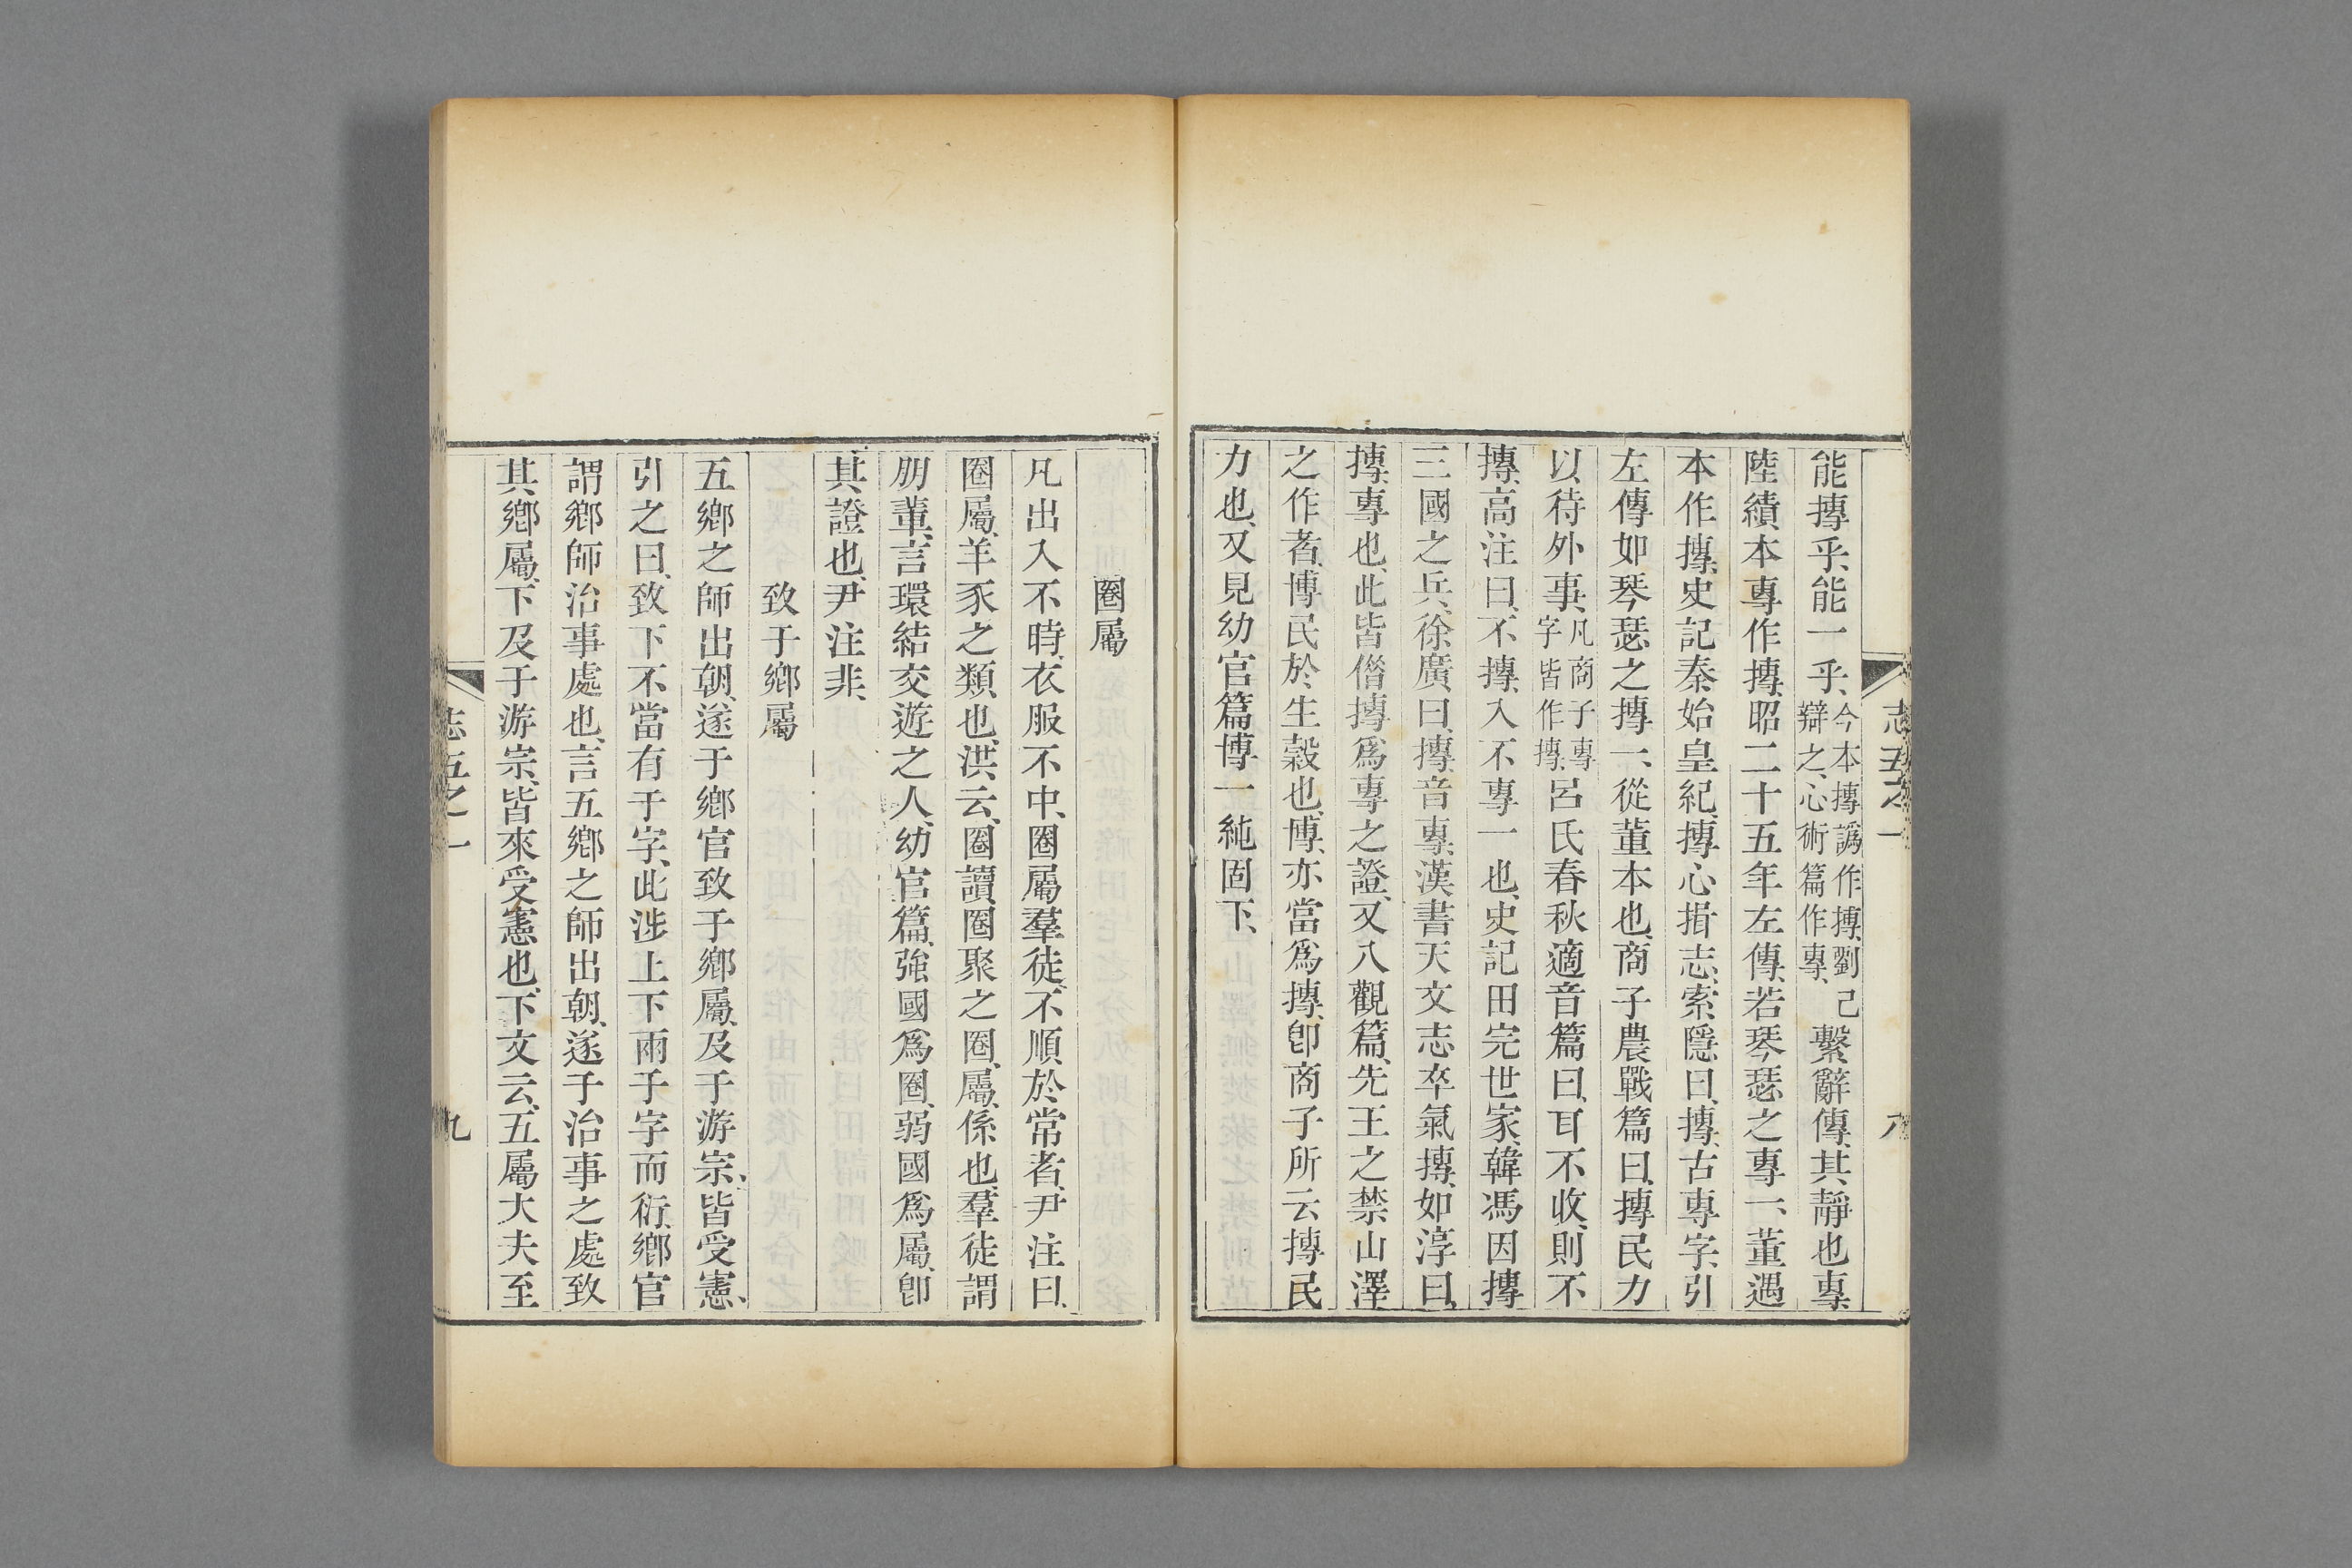 能摶乎、能一乎、今本摶譌作搏、劉辯之、心術篇作專、己繫辭傳、其靜也專、
陸績本專作摶、昭二十五年左傳、若琴瑟之專一、董遇
本作摶、史記秦始皇紀、摶心揖志、索隱曰、摶、古專字、引
左傳如琴瑟之摶一、從董本也、商子農戰篇曰、摶民力
以待外事、凡商子專字皆作摶、呂氏春秋適音篇曰、耳不收、則不
摶、高注曰、不摶、入不專一也、史記田完世家、韓馮因摶
三國之兵、徐廣曰、摶、音專、漢書天文志卒氣摶、如淳曰、
摶、專也、此皆借摶爲專之證、又八觀篇、先王之禁山澤
之作者、博民於生穀也、博、亦當爲摶、卽商子所云摶民
力也、又見幼官篇博一純固下、
志五之一
八
圈屬
凡出入不時、衣服不中、圈屬羣徒、不順於常者、尹注曰、
圈屬、羊豕之類也、洪云、圈讀、圈聚之圈、屬、係也、羣徒謂
朋黨、言環結交遊之人、幼官篇、強國爲圈、弱國爲屬、卽
其證也、尹注非、
致于鄉屬
五鄉之師出朝、遂于鄉官致于鄉屬、及于游宗、皆受憲、
引之曰、致下不當有于字、此涉上下兩于字而衍、鄉官
謂鄉師治事處也、言五鄉之師出朝、遂于治事之處致
其鄉屬、下及于游宗、皆來受憲也、下文云、五屬大夫至
志五之一
九